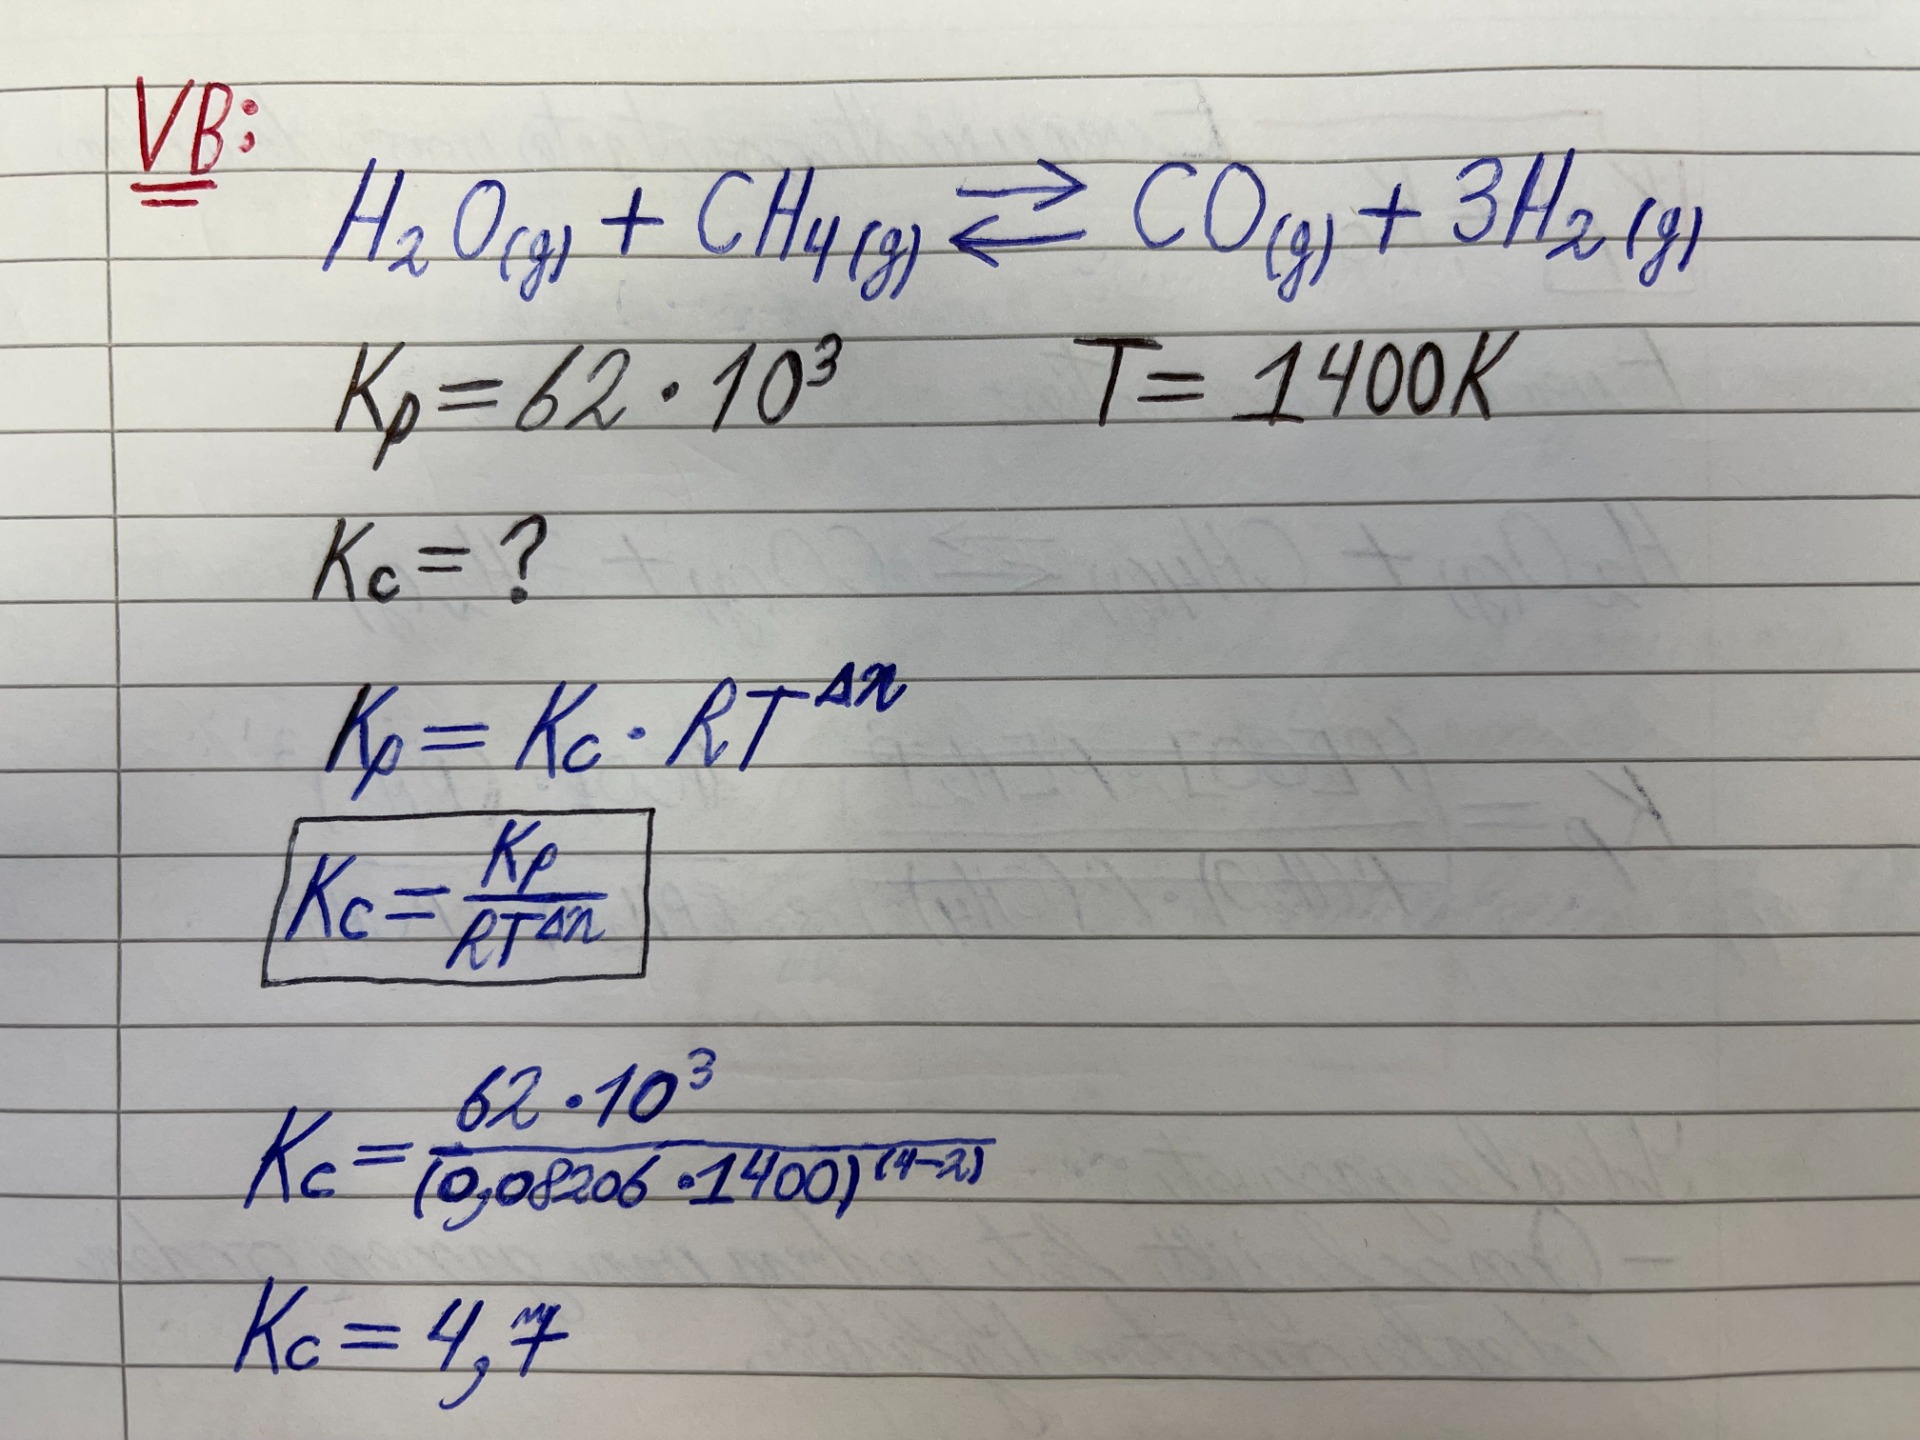 VB:
H₂O(g) + CH₄(g) ⇄ CO(g) + 3H₂(g)
Kp = 62 · 10³ T = 1400K
Kc = ?
Kp = Kc · RT^Δn
Kc = Kp / RT^Δn
Kc = 62 · 10³ / (0,08206 · 1400)^(4-2)
Kc = 4,7